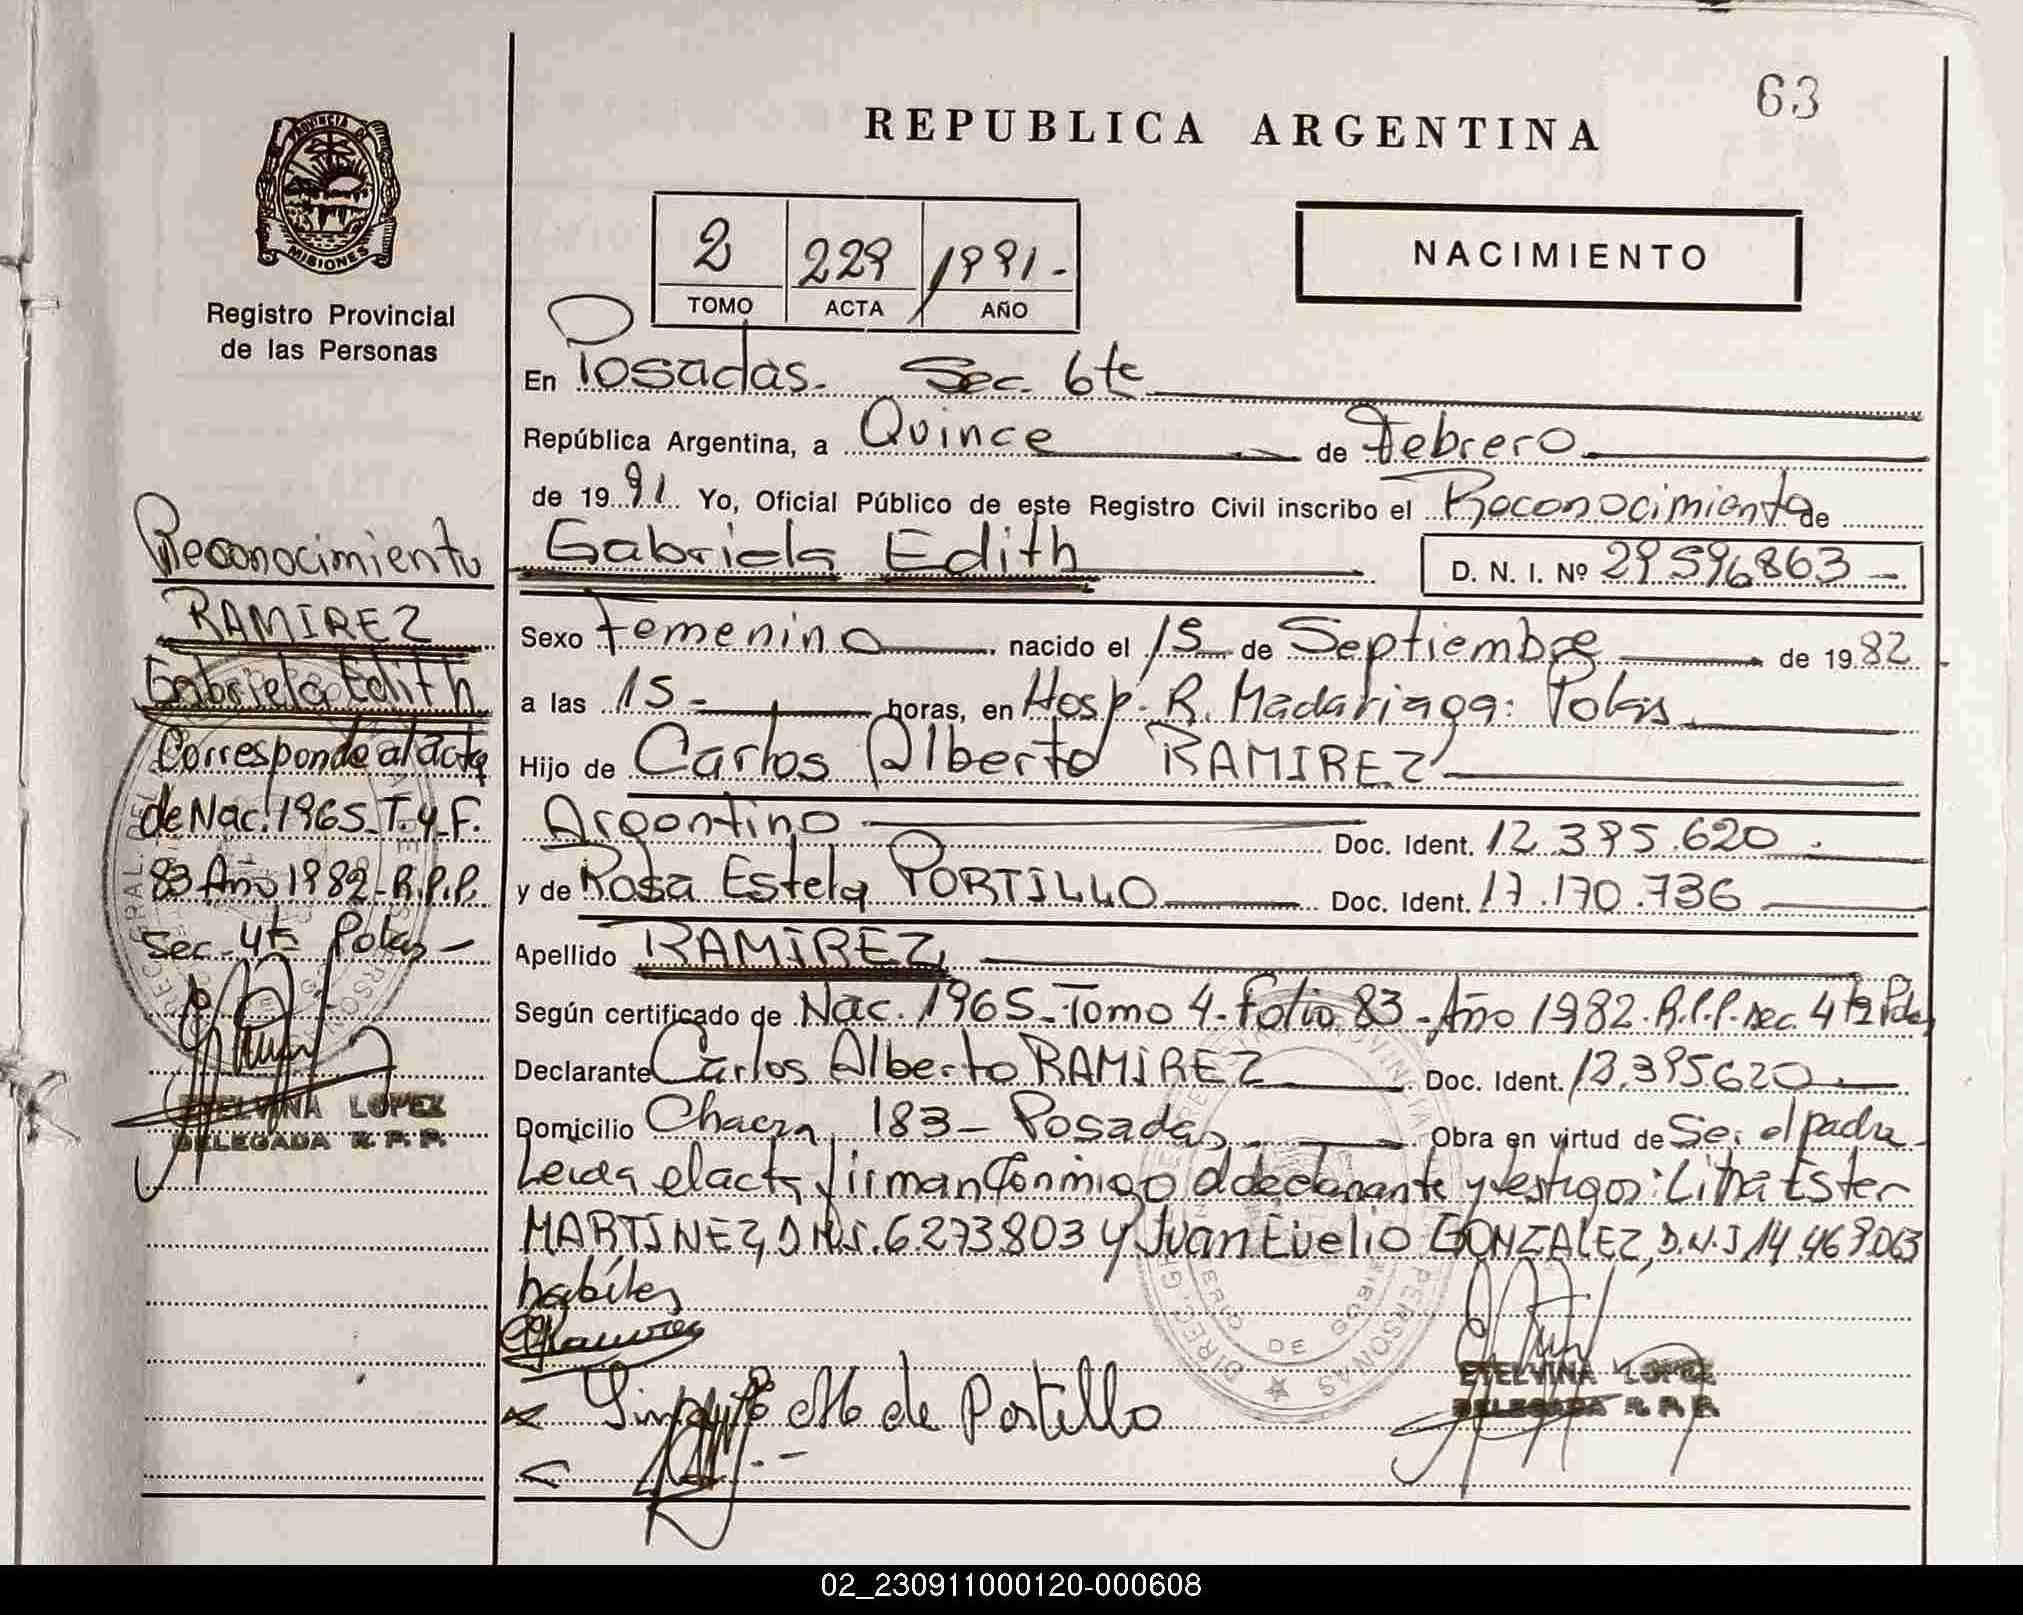 63
REPUBLICA ARGENTINA
PROVINCIA DE
MISIONES
Registro Provincial
de las Personas
2 229 1991.-
TOMO ACTA AÑO
NACIMIENTO
En Posadas. Sec. 6ta
República Argentina, a Quince de Febrero
de 1991 Yo, Oficial Público de este Registro Civil inscribo el Reconocimiento de
Gabriela Edith D. N. I. Nº 29596863-
Sexo Femenino nacido el 15 de Septiembre de 1982
a las 15- horas, en Hosp. R. Madariaga: Pdas
Hijo de Carlos Alberto RAMIREZ
Argentino Doc. Ident. 12.395.620
y de Rosa Estela PORTILLO Doc. Ident. 17.170.736
Apellido RAMIREZ
Según certificado de Nac. 1965-Tomo 4-folio 83-Año 1982-R.P.P. sec. 4ta Pdas
Declarante Carlos Alberto RAMIREZ Doc. Ident. 12.395620
Domicilio Chacra 183- Posadas Obra en virtud de Ser el padre
Leida el acta firman conmigo el declarante y testigos: Litha Ester
MARTINEZ, D.N.I. 6.273803 y Juan Evelio GONZALEZ, D.N.I 14.469.063
habiles
de Portillo
ETELVINA LOPEZ
DELEGADA R.P.P.
Reconocimiento
RAMIREZ
Gabriela Edith
Corresponde al acta
de Nac. 1965-T.4-F.
83 Año 1982-R.P.P.
Sec. 4ta Pdas-
ETELVINA LOPEZ
DELEGADA R.P.P.
02_230911000120-000608